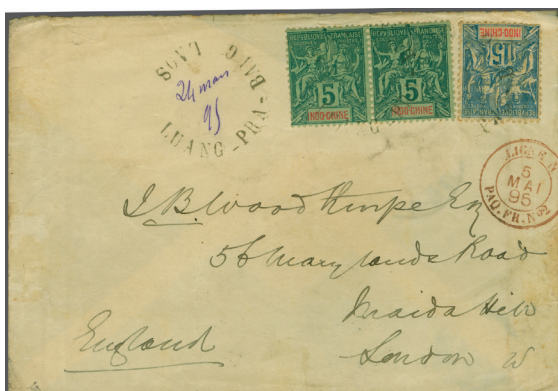 LUANG-PRABANG LAOS
24 mars
95
REPUBLIQUE FRANCAISE
5
INDO-CHINE
REPUBLIQUE FRANCAISE
5
INDO-CHINE
15
INDO-CHINE
LIGNE N
5
MAI
95
PAQ. FR. Nº
J B Woodthorpe Esq
56 Marylands Road
Maida Hill
London W
England